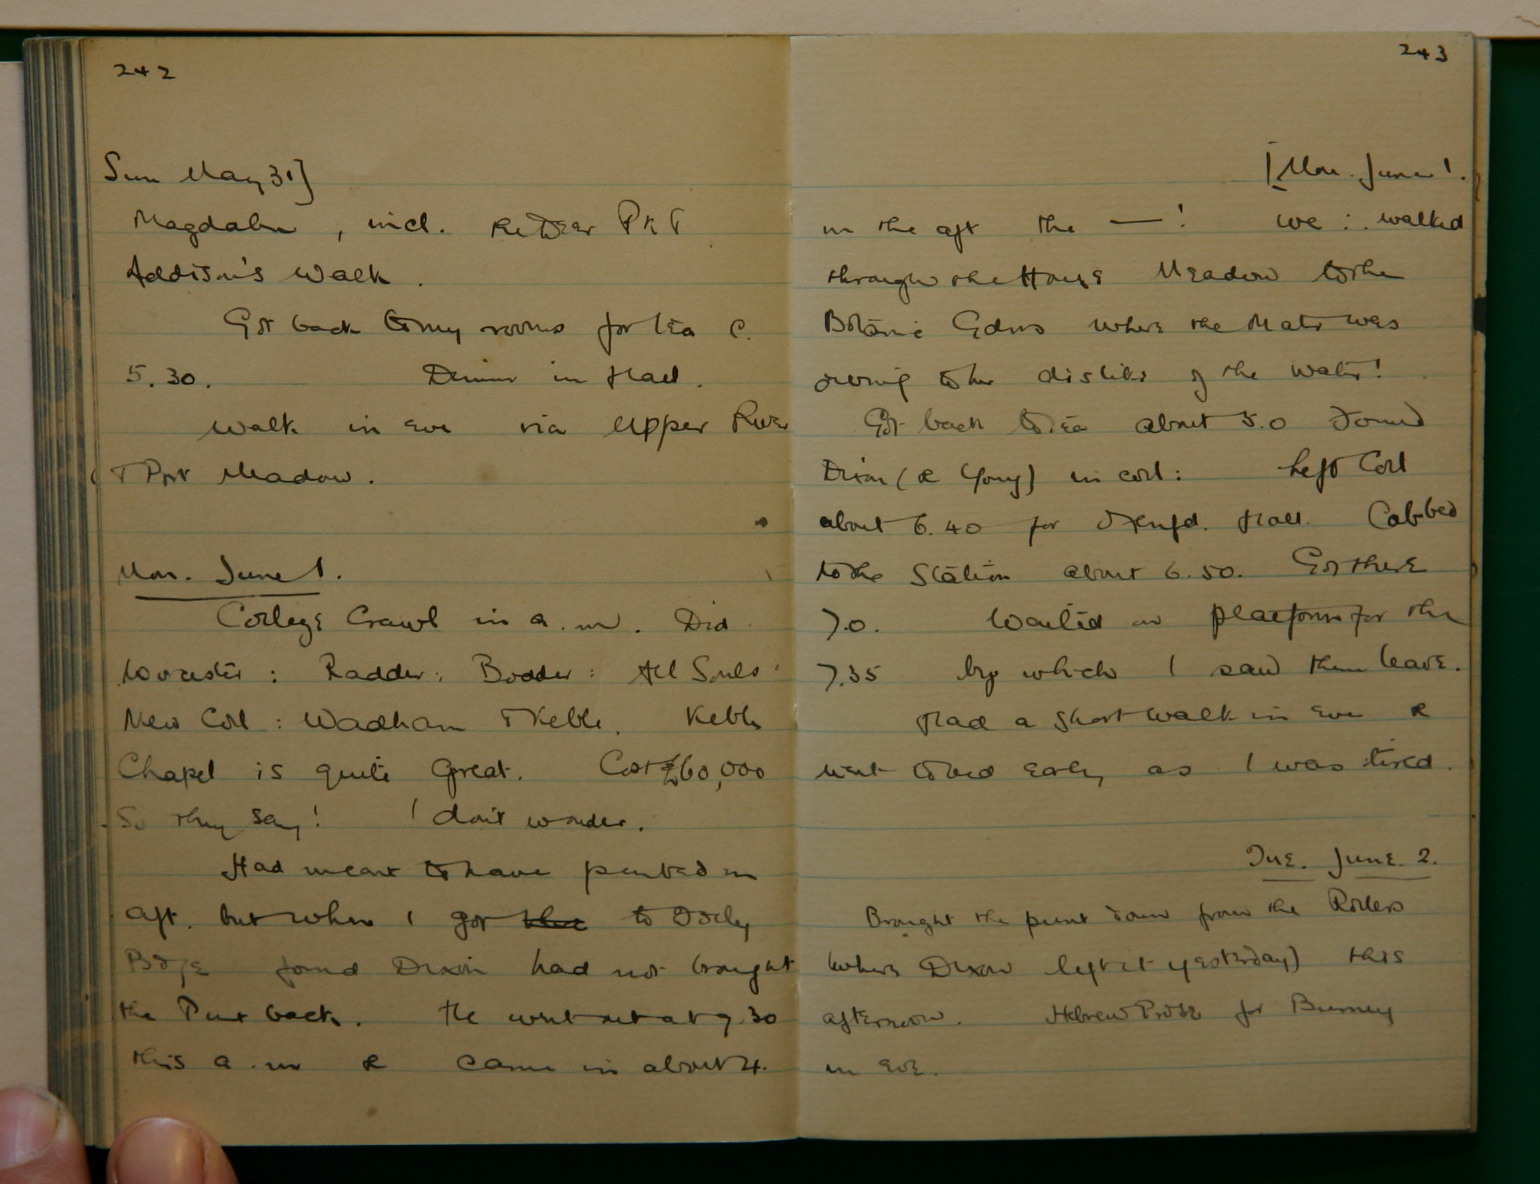 242
Sun May 31]
Magdalen, incl. the Deer Pk &
Addison's Walk.
Got back to my rooms for tea c.
5.30. Dinner in Hall.
Walk in eve via Upper River
& Port Meadow.
Mon. June 1.
College Crawl in a.m. Did
Worcester: Radder: Bodder: All Souls:
New Coll: Wadham & Keble. Keble
Chapel is quite great. Cost £60,000
So they say! I don't wonder.
Had meant to have punted in
aft. but when I got to
Bdge found Dixon had not brought
the Punt back. He went out at 9.30
this a.m & came in about 4.
243
[Mon. June 1.
in the aft the —! We ∴ walked
through the House Meadow to the
Botanic Gdns where the Mater was
owing to her dislike of the water!
Got back to tea about 5.0 Found
Dixon (& Young) in coll: Left Coll
about 6.40 for Hall. Cabbed
to the Station about 6.50. Got there
7.0. Waited on platform for the
7.35 by which I saw them leave.
Had a short walk in eve &
went to bed early as I was tired.
Tue. June 2.
Brought the punt down from the Rollers
(where Dixon left it yesterday) this
afternoon. Hebrew Prose for Burney
in eve.